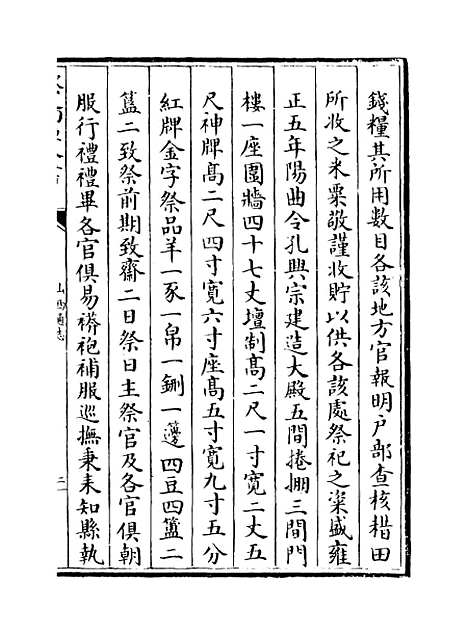 錢糧其所用數目各該地方官報明戶部查核耤田
所收之米粟敬謹收貯以供各該處祭祀之粢盛雍
正五年陽曲令孔興宗建造大殿五間捲棚三間門
樓一座圍牆四十七丈壇制髙二尺一寸寬二丈五
尺神牌髙二尺四寸寬六寸座髙五寸寬九寸五分
紅牌金字祭品羊一豕一帛一鉶一籩四豆四簠二
簋二致祭前期致齋二日祭日主祭官及各官俱朝
服行禮禮畢各官俱易蟒袍補服巡撫秉耒知縣執
山西通志